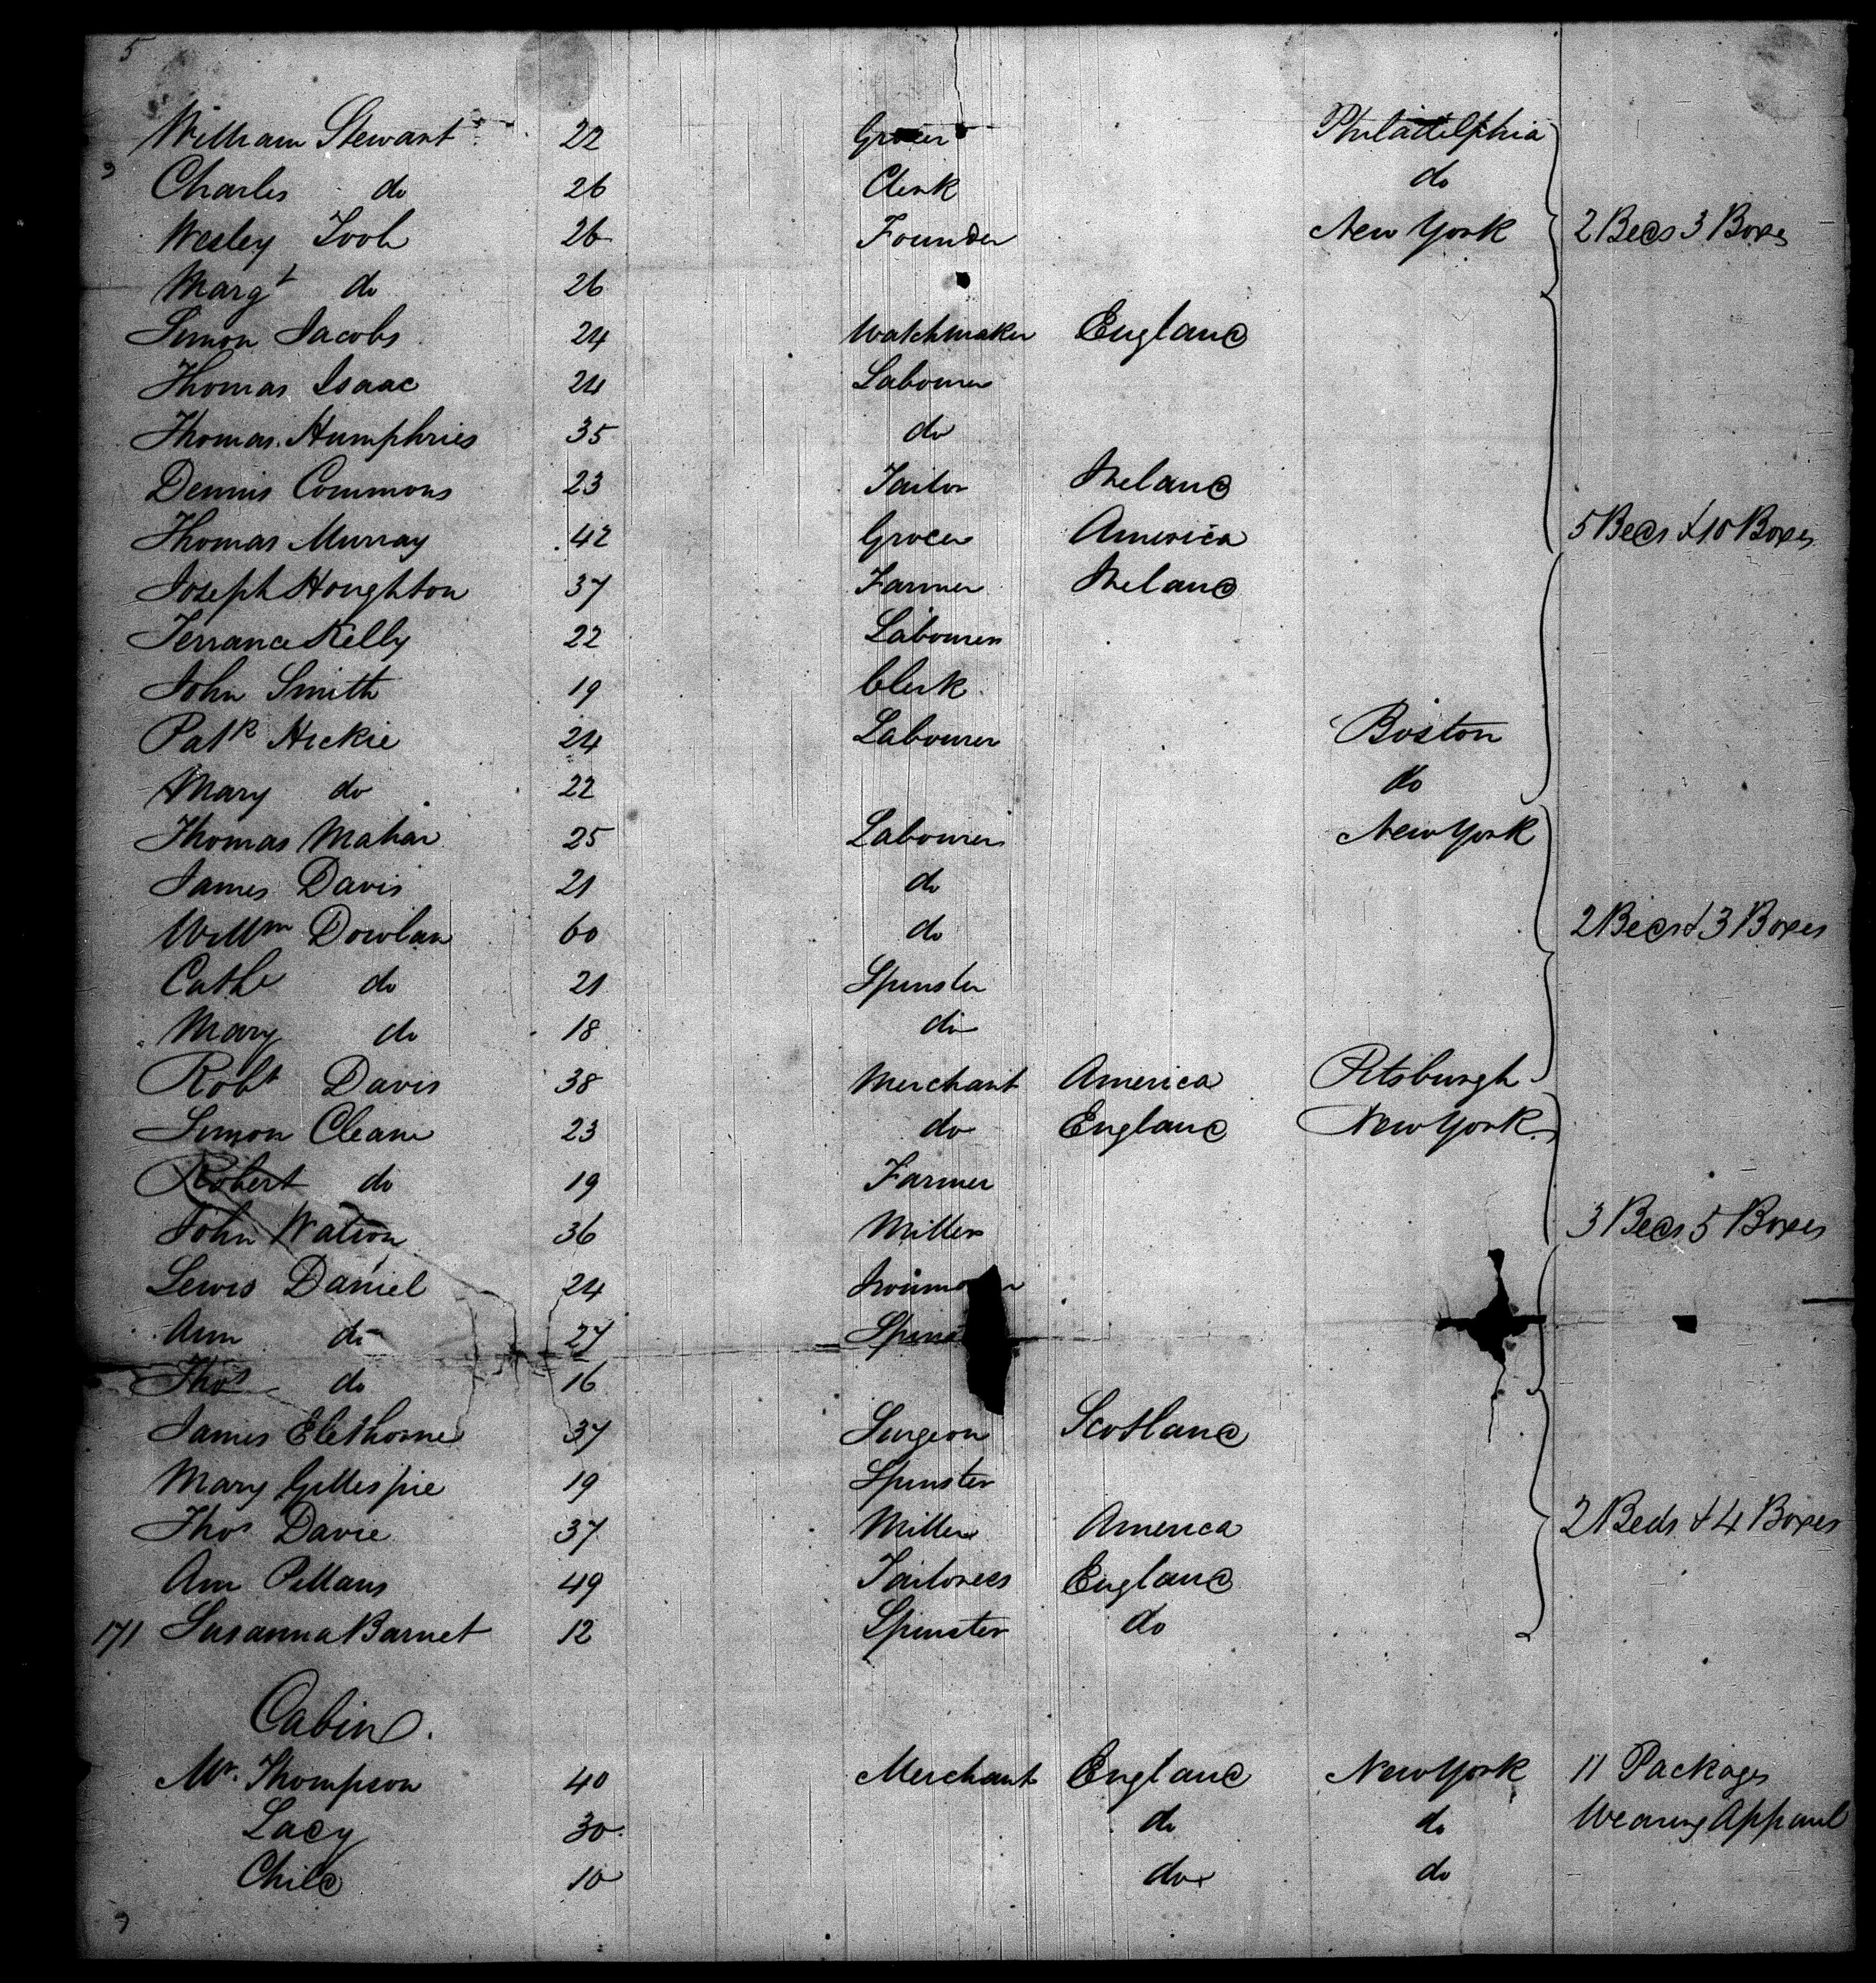 5
William Stewart 22 Grocer Philadelphia
Charles do 26 Clerk do
Wesley 26 Founder New York 2 Beds 3 Boxes
Margt do 26
Simon Jacobs 24 Watchmaker England
Thomas Isaac 24 Labourer
Thomas Humphries 35 do
Dennis Commons 23 Tailor Ireland
Thomas Murray 42 Grocer America 5 Beds & 10 Boxes
Joseph Houghton 37 Farmer Ireland
Terrance Kelly 22 Labourer
John Smith 19 Clerk
Patk Hickie 24 Labourer Boston
Mary do 22 do
Thomas Mahar 25 Labourer New York
James Davis 21 do
Willm Dowlan 60 do 2 Beds & 3 Boxes
Cathe do 21 Spinster
Mary do 18 do
Robt Davis 38 Merchant America Pitsburgh
Simon Cleane 23 do England New York
Robert do 19 Farmer
John Watson 36 Miller 3 Beds 5 Boxes
Lewis Daniel 24
Ann do 27
Thos do 16
James Elethorne 37 Surgeon Scotland
Mary Gillespie 19 Spinster
Thos Davie 37 Miller America 2 Beds & 4 Boxes
Ann Pillans 49 Tailoress England
171 Susanna Barnet 12 Spinster do
Cabin.
Mr. Thompson 40 Merchant England New York 11 Packages
Lady 30 do do Wearing Apparel
Child 10 do do